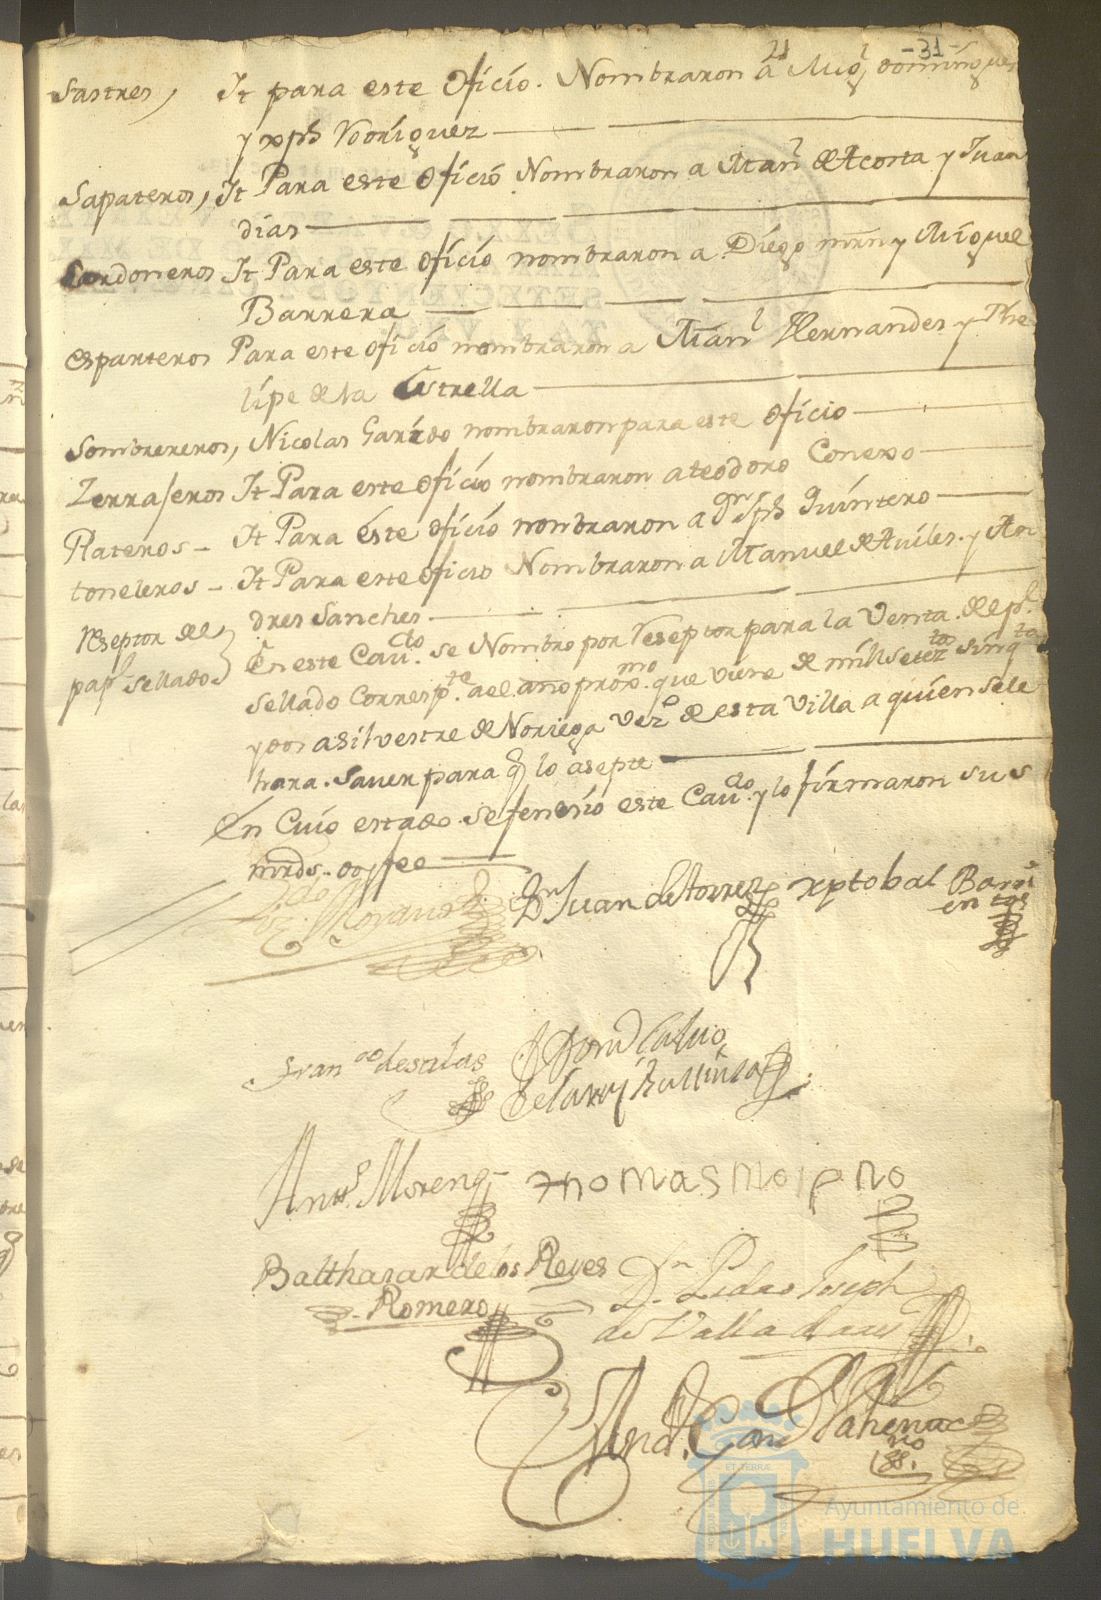 -31-
21
Sastres, It para este oficio. Nombraron a Migl dominguez
y xph Rodriguez
Sapateros, It Para este oficio Nombraron a Manl de Acosta y Juan
dias
Cordoneros It Para este oficio nombraron a Diego mrn y Miguel
Barrera
esparteros Para este oficio nombraron a Manl Hernandes y Phe
lipe de la Estrella
Sombrereros, Nicolas Garrido nombraron para este oficio
Zerrajeros It Para este oficio nombraron a teodoro Conexo
Plateros - It Para este oficio nonbraron a Dn Jph Quintero
toneleros - It Para este oficio Nombraron a Manuel de Aviles. y An
dres Sanches.
Reseptor del papl sellado
En este Cavdo. se Nombro por Reseptor para la Venta. del pl.
sellado Corresp.te a el año proxmo. que viene de mill setezto sinqta
y dos a Silvestre de Noriega vezo de esta villa a quien se le
hara. saver para q lo asepte
En Cuio estado. se fenesio este Cavdo. y lo firmaron sus
mrds. doy fee
Dn Juan de torres xptobal Barri
entos
Franco de salas
Anto. Moreno thomas Moreno
Balthasar de los Reyes
Romero
Dn. Pedro Joseph
de Valladares
ET TERRÆ
Ayuntamiento de
HUELVA